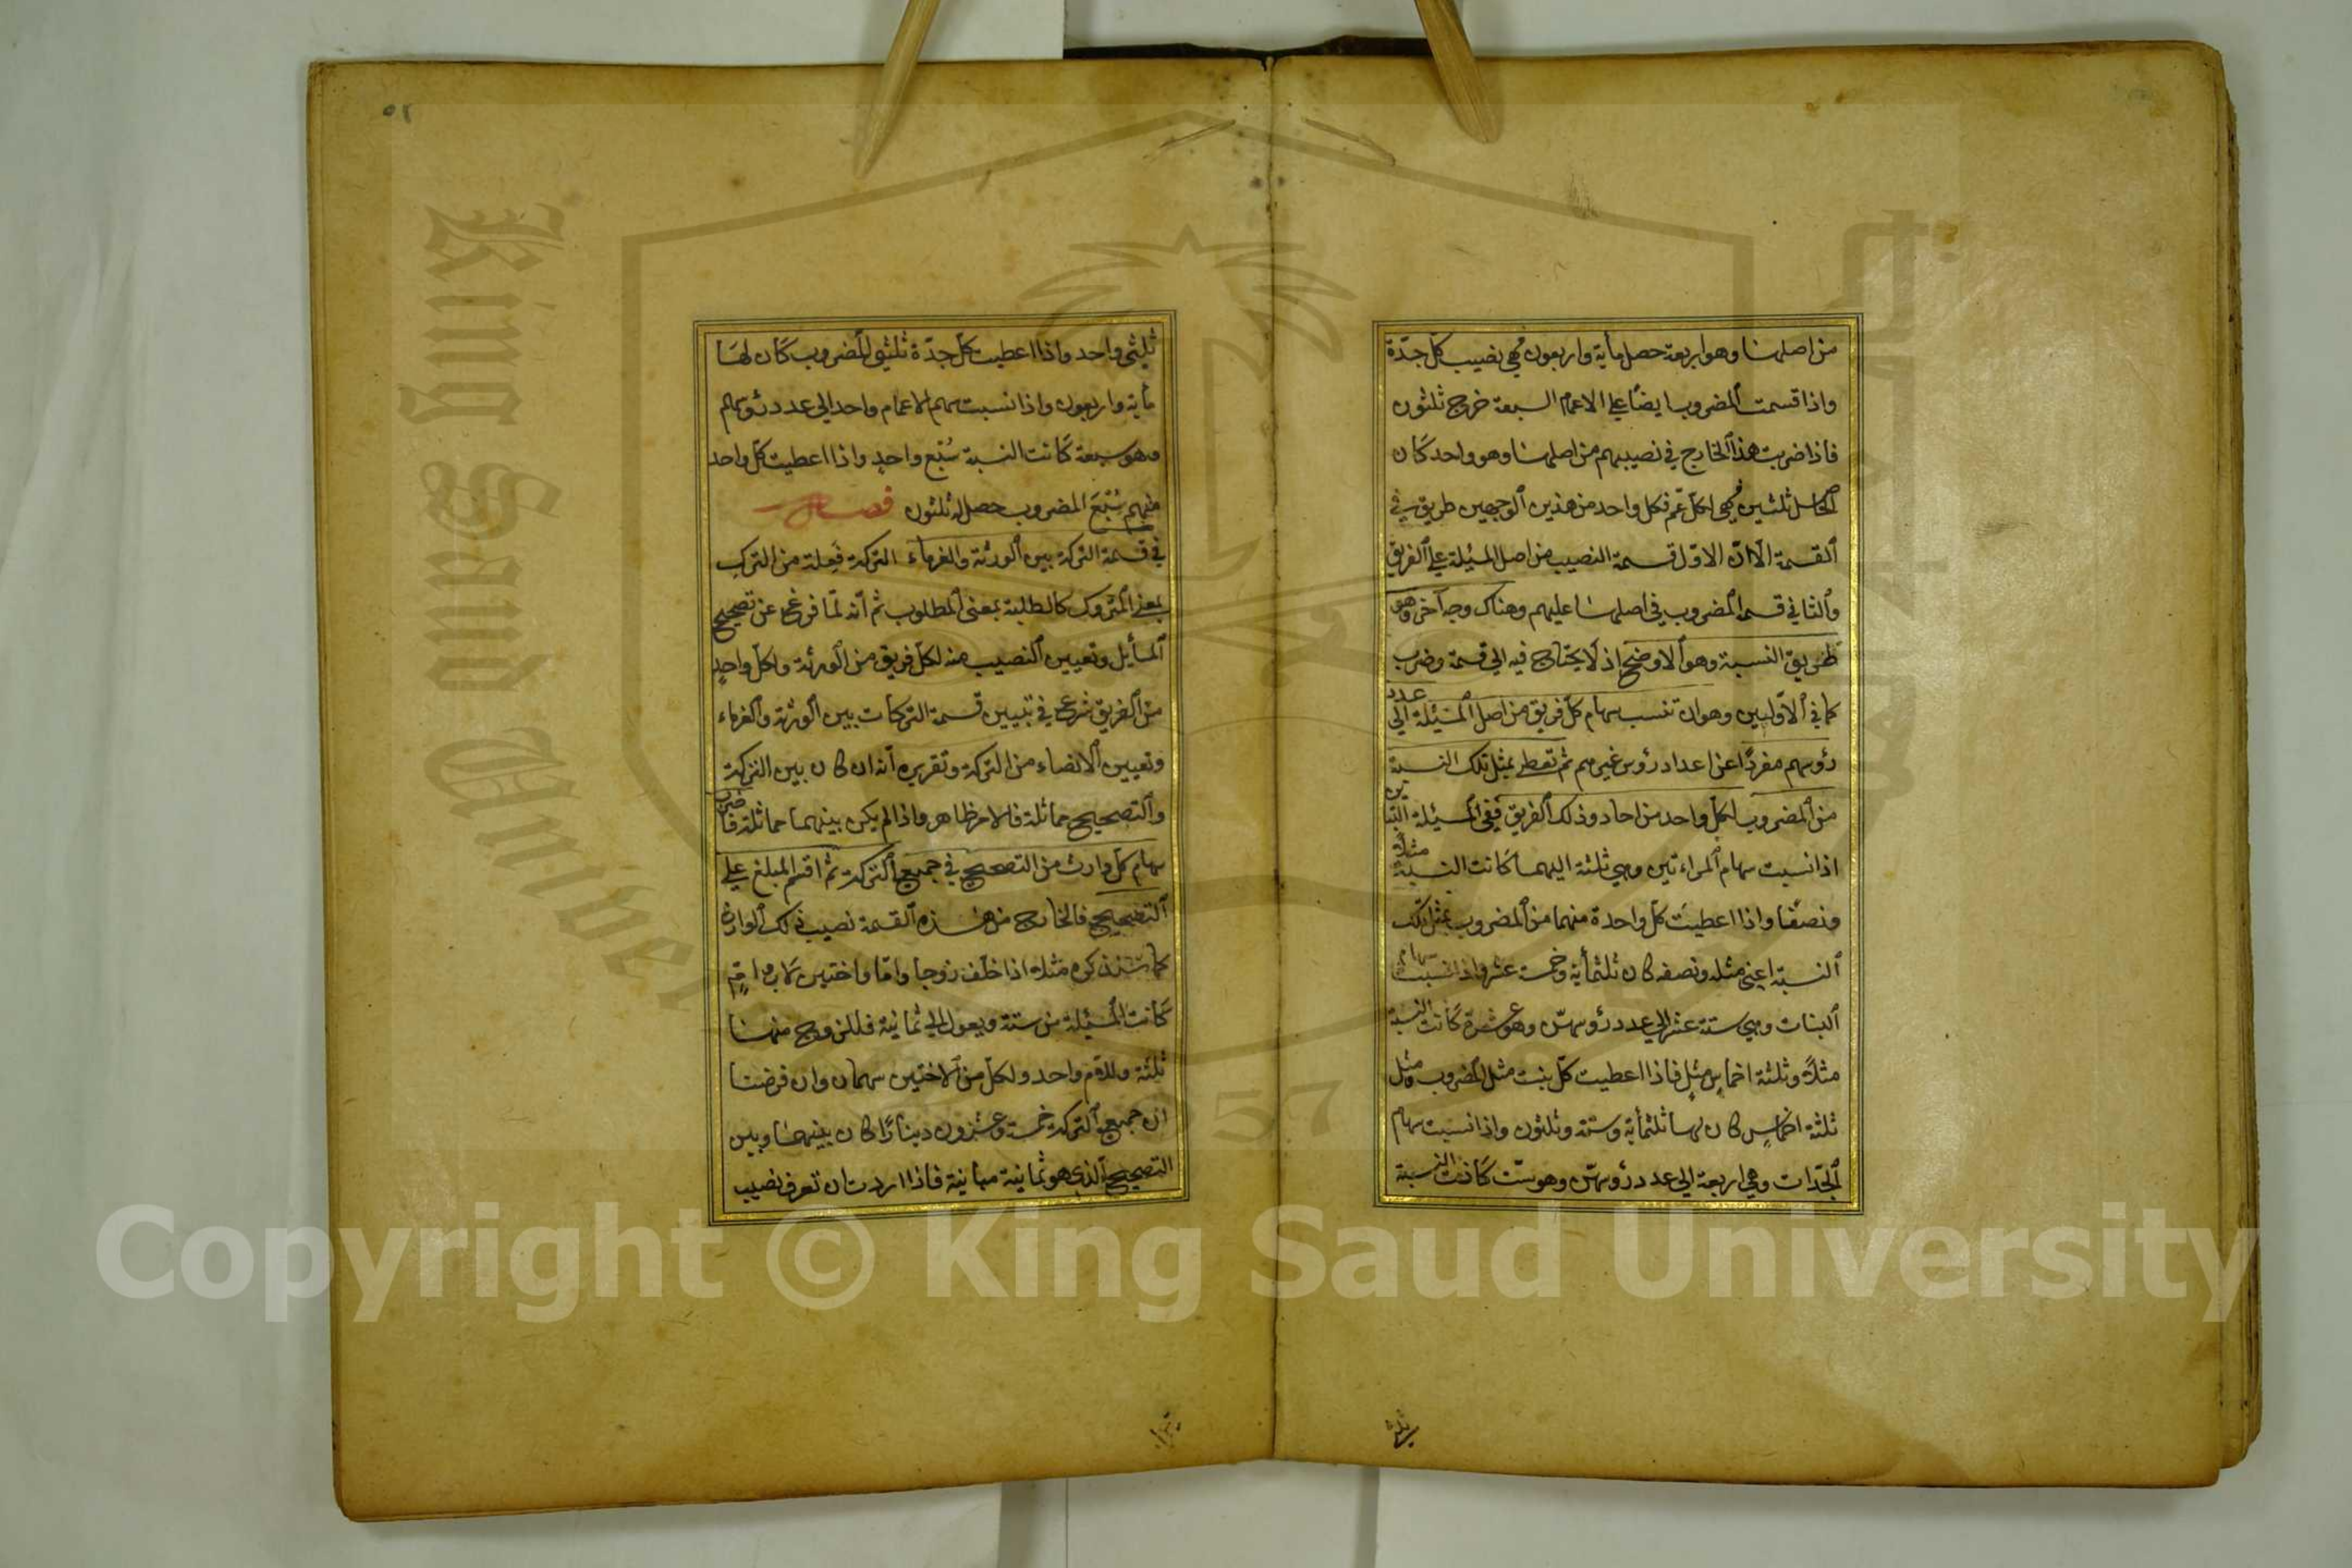 من اصلها وهو اربعة حصل مأية واربعون فهي نصيب كل جدّة
واذا قسمت المضروب ايضًا علي الاعمام السبعة خرج ثلثون
فاذا ضربت هذا الخارج في نصيبهم من اصلها وهو واحد كان
الحاصل ثلثين فهي لكل عم فكل واحد من هذين الوجهين طريق في
القسمة الا ان الاول قسمة النصيب من اصل المسئلة علي الفريق
والثاني قسمة المضروب في اصلها عليهم وهناك وجه آخر وهو
طريق النسبة وهو الاوضح اذ لا يحتاج فيه الي قسمة وضرب
كما في الاوليين وهو ان تنسب سهام كل فريق من اصل المسئلة الي عدد
رؤسهم مفردًا عن اعداد رؤس غيرهم ثم تعطي بمثل تلك النسبة
من المضروب لكل واحد من احاد ذلك الفريق ففي المسئلة
اذا نسبت سهام المراءتين وهي ثلثة اليهما كانت النسبة مثلاً
ونصفًا واذا اعطيت كل واحدة منهما من المضروب بمثل تلك
النسبة اعني مثله ونصفه كان ثلثمأية وخمسة عشر واذا نسبت سهام
البنات وهي ستة عشر الي عدد رؤسهن وهو عشرة كانت النسبة
مثلاً وثلثة اخماس مثل فاذا اعطيت كل بنت مثل المضروب ومثل
ثلثة اخماس كان لها ثلثمأية وستة وثلثون واذا نسبت سهام
الجدات وهي اربعة الي عدد رؤسهن وهو ست كانت النسبة
ثلثي
٥٢
ثلثي واحد واذا اعطيت كل جدّة ثلثي المضروب كان لها
مأية واربعون واذا نسبت سهم الاعمام واحد الي عدد رؤسهم
وهو سبعة كانت النسبة سُبْع واحدٍ واذا اعطيت كل واحد
منهم سُبْعَ المضروب حصل له ثلثون فصل
في قسمة التركة بين الورثة والغرماء التركة فَعِلة من الترك
بمعني المتروك كالطلبة بمعنى المطلوب ثم انه لمّا فرغ عن تصحيح
المسايل وتعيين النصيب منه لكل فريق من الورثة ولكل واحدٍ
من الفريق شرع في تبيين قسمة التركات بين الورثة والغرماء
وتعيين الانصباء من التركة وتقريره انه ان كان بين التركة
والتصحيح مماثلة فالامر ظاهر واذا لم يكن بينهما مماثلة فاضرب
سهام كل وارث من التصحيح في جميع التركة ثم اقسم المبلغ علي
التصحيح فالخارج من هذه القسمة نصيب ذلك الوارث
كما سنذكره مثلا اذا خلف زوجا واما واختين لاب وام
كانت المسئلة من ستة ويعول الي ثمانية فللزوج منها
ثلثة وللام واحد ولكل من الاختين سهمان وان فرضنا
ان جميع التركة خمسة وعشرون دينارًا كان بينها وبين
التصحيح الذي هو ثمانية مباينة فاذا اردت ان تعرف نصيب
King Saud University
1957
Copyright © King Saud University